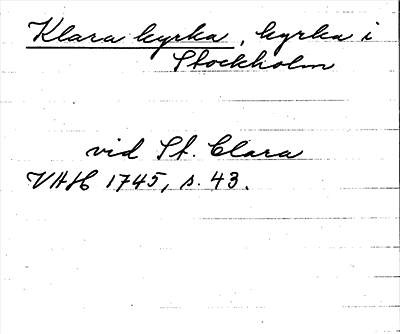 Klara kyrka, kyrka i
Stockholm
vid St. Clara
VAH 1745, s. 43.